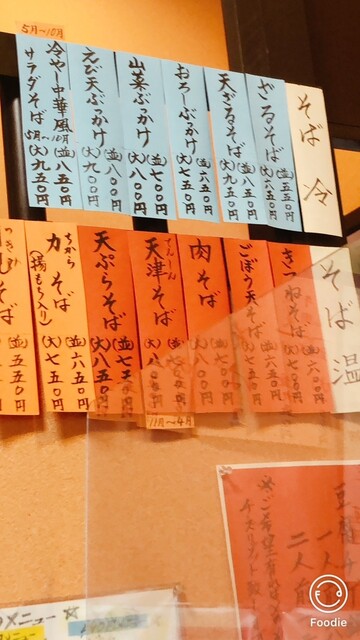 そば 冷
ざるそば
(並)五五〇円
(大)六五〇円
天ざるそば
(並)八五〇円
(大)九五〇円
おろしぶっかけ
(並)六五〇円
(大)七五〇円
山菜ぶっかけ
(並)七〇〇円
(大)八〇〇円
えび天ぶっかけ
(並)八〇〇円
(大)九〇〇円
5月〜10月
冷やし中華風
サラダそば 5月〜10月
(並)八五〇円
(大)九五〇円
そば 温
きつねそば
(並)六〇〇円
ごぼう天そば
(並)六五〇円
(大)七五〇円
肉そば
(大)八〇〇円
てんしん
天津そば
11月〜4月
天ぷらそば
(大)八五〇円
ちから
力そば
(揚もち入り)
(並)六五〇円
(大)七五〇円
そば
(並)五五〇円
※ご希望
一人
二人前
メニュー
Foodie